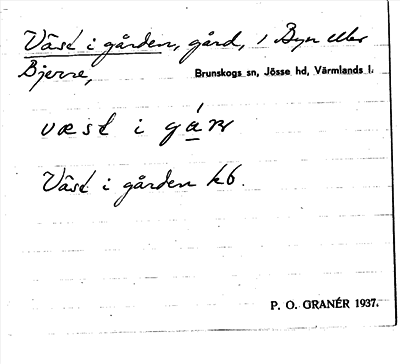 Väst i gården, gård, i Byn eller
Bjerre, Brunskogs sn, Jösse hd, Värmlands l.
væst i gá̱ɴ
Väst i gården kb.
P. O. GRANÉR 1937.